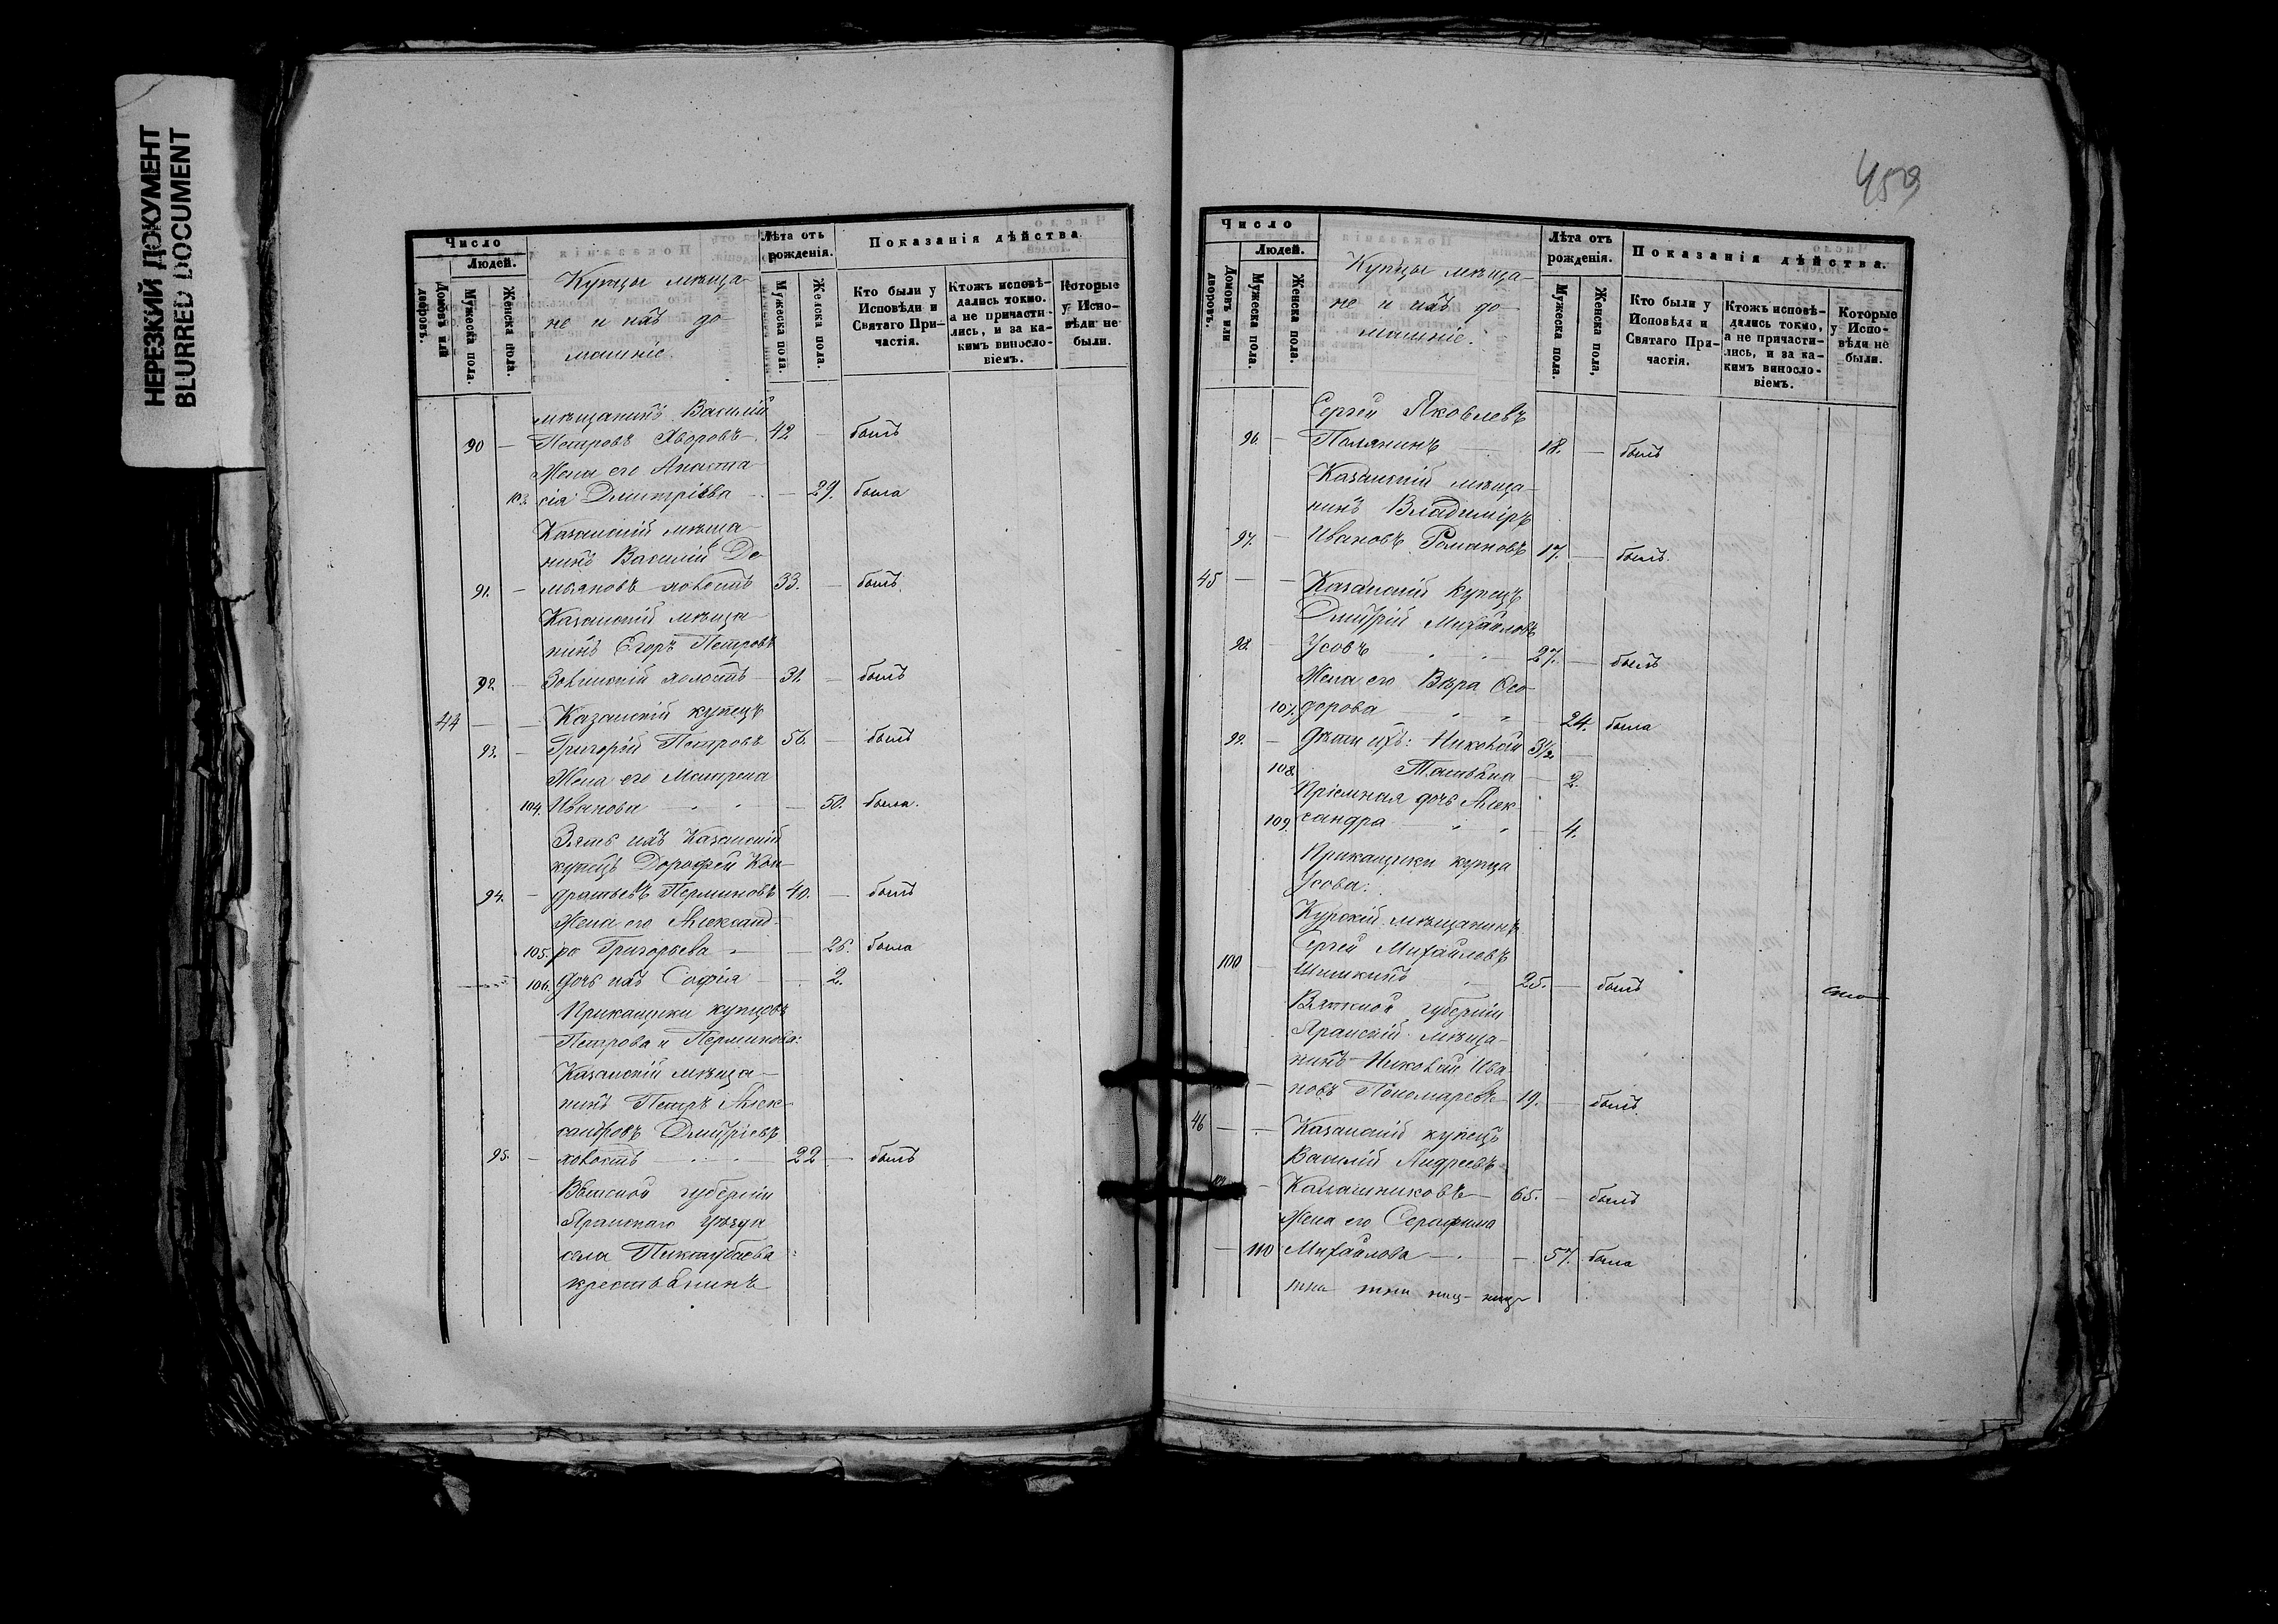 НЕРЕЗКИЙ ДОКУМЕНТ
BLURRED DOCUMENT
Число
Людей.
Домовъ или дворовъ.
Мужеска пола.
Женска пола.
Купцы мѣща-
не и ихъ до-
машніе.
Лѣта отъ рожденія.
Мужеска пола.
Женска пола.
Показанія дѣйства.
Кто были у Исповѣди и Святаго При-частія.
Ктожъ исповѣ-дались токмо, а не причасти-лись, и за ка-кимъ винosло-віемъ.
Которые у Испо-вѣди не были.
мѣщанинъ Василій
90 — Петровъ Яворовъ — 42 — былъ
Жена его Анаста-
103. сія Дмитріева — 29. была
Казанскій мѣща-
нинъ Василій Де-
91. — мьяновъ холостъ 33. — былъ.
Казанскій мѣща-
нинъ Егоръ Петровъ
92. — холостъ — 31. — былъ
44 — — Казанскій купецъ
93. — Григорій Петровъ 56. — былъ
Жена его Матрена
104. Иванова — 50. была.
Зять ихъ Казанскій
купецъ Дорофей Кон-
94. — дратьевъ Перминовъ 40. — былъ
Жена его Александ-
105. ра Григорьева — 26. была
106. дочь ихъ Софія — 2.
Прикащики купцовъ
Петрова и Перминова:
Казанскій мѣща-
нинъ Петръ Алек-
сандровъ Дмитріевъ
95. — холостъ — 22 — былъ
Вятской губерніи
Яранскаго уѣзда
села Пиктубаева
крестьянинъ
459
Число
Людей.
Домовъ или дворовъ.
Мужеска пола.
Женска пола.
Купцы мѣща-
не и ихъ до-
машніе.
Лѣта отъ рожденія.
Мужеска пола.
Женска пола,
Показанія дѣйства.
Кто были у Исповѣди и Святаго При-частія.
Ктожъ исповѣ-дались токмо, а не причасти-лись, и за ка-кимъ винocло-віемъ.
Которые у Испо-вѣди не были.
Сергей Яковлевъ
96. — Полянинъ — 18. — былъ
Казанскій мѣща-
нинъ Владиміръ
97. — Ивановъ Романовъ 17. — былъ.
45 — — Казанскій купецъ
Дмитрій Михайловъ
98. — Усовъ — 27. — былъ
Жена его Вѣра Ѳео-
107. дорова — 24. была
99. — Дѣти ихъ: Николай 3½ —
108. Татьяна — 2.
Пріемная дочь Алек-
109. сандра — 4.
Прикащики купца
Усова:
Курскій мѣщанинъ
Сергей Михайловъ
100 — Шишкинъ — 25. — былъ
Вятской губерніи
Яранскій мѣща-
нинъ Николай Ива-
— новъ Пономаревъ — 19. — былъ
46 — — Казанскій купецъ
Василій Андреевъ
— Калашниковъ — 65. — былъ
Жена его Серафима
— 110 Михайлова — 57. была